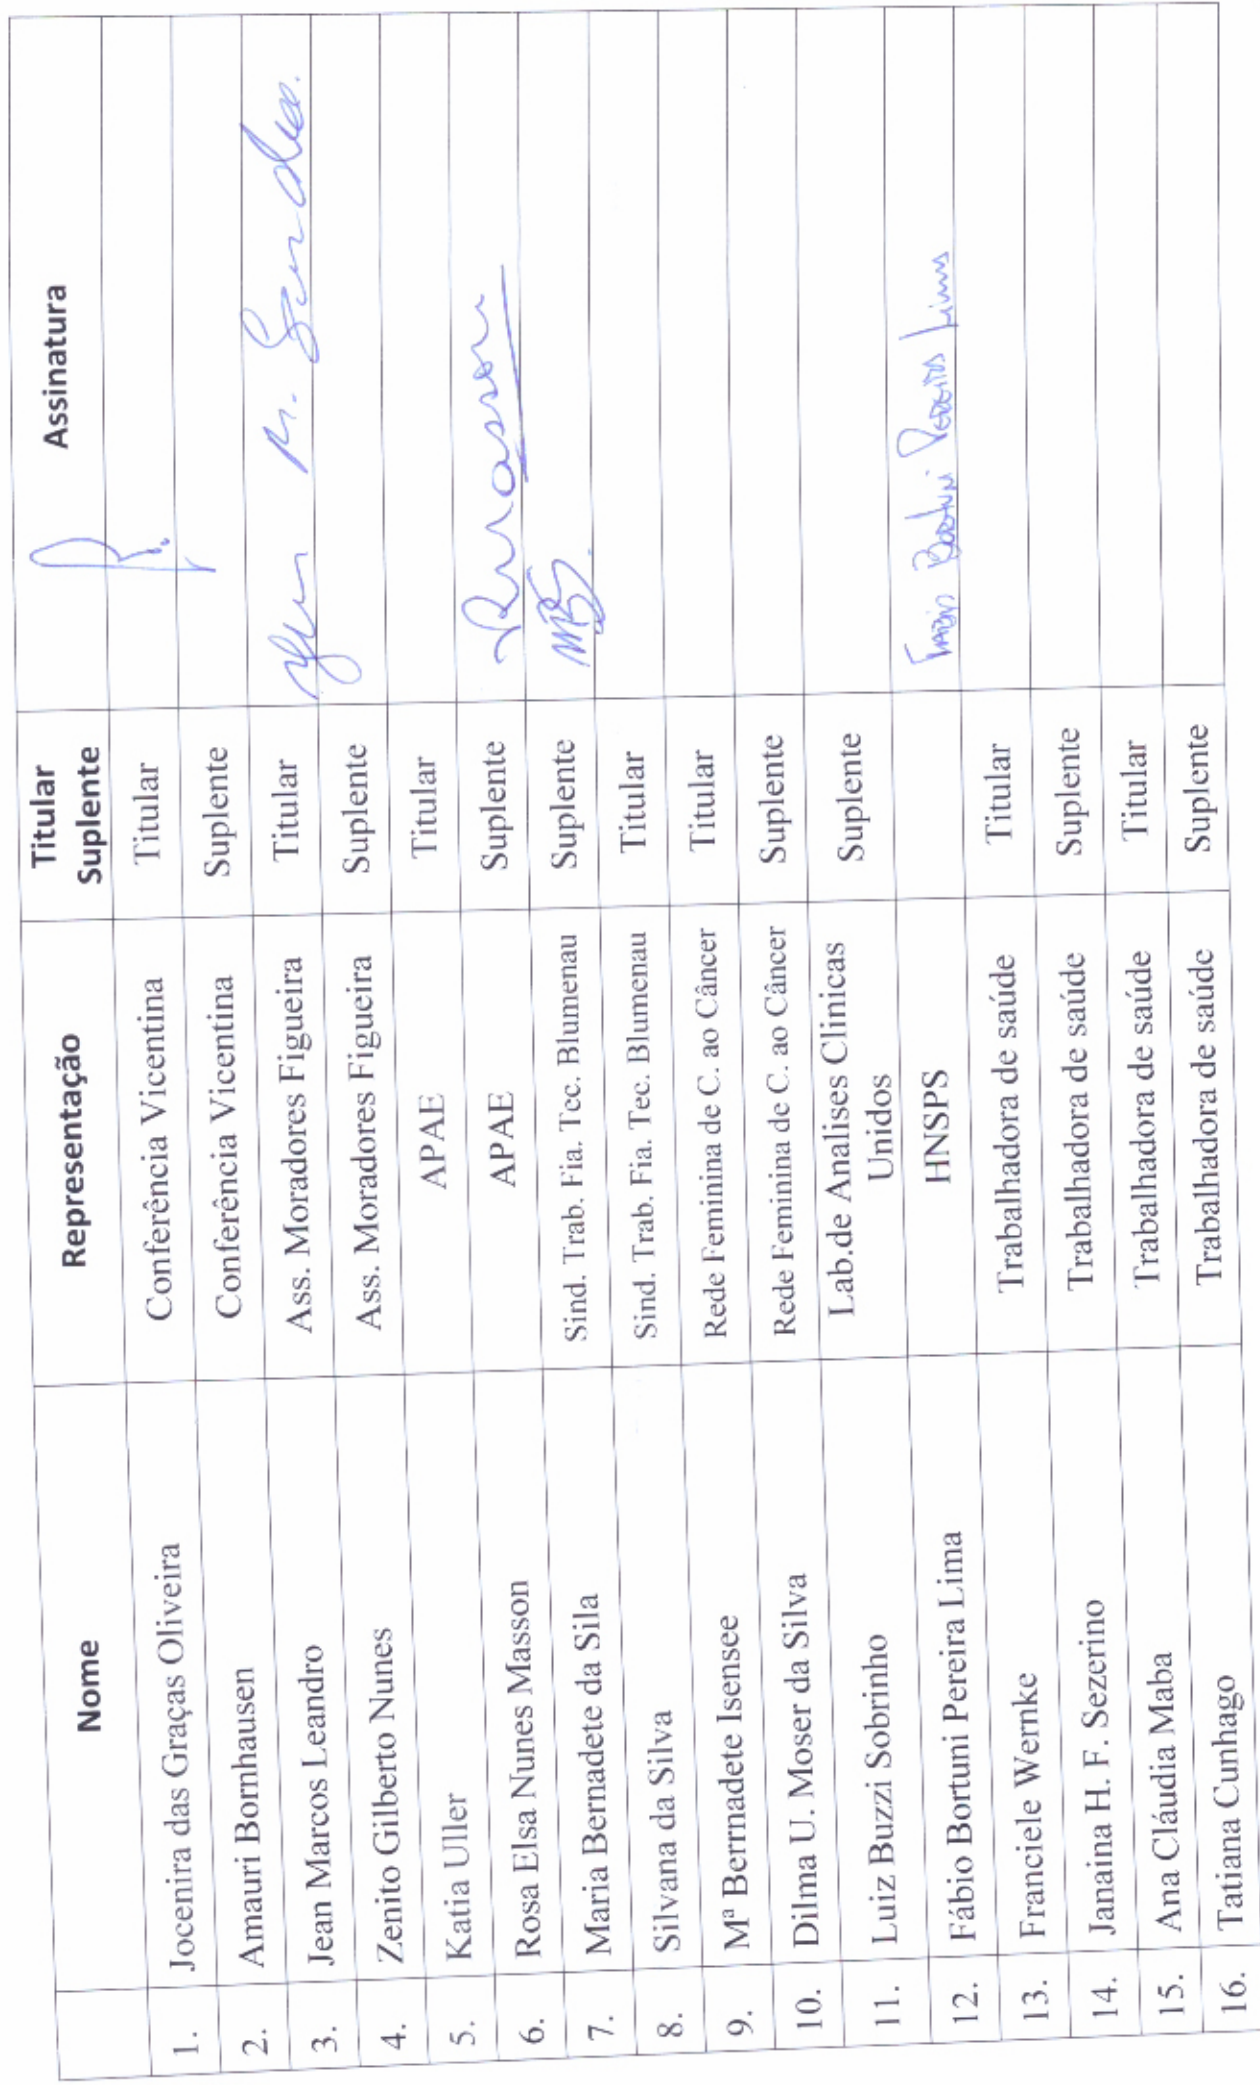 Nome Representação Titular Suplente Assinatura
1. Jocenira das Graças Oliveira Conferência Vicentina Titular
2. Amauri Bornhausen Conferência Vicentina Suplente
3. Jean Marcos Leandro Ass. Moradores Figueira Titular
4. Zenito Gilberto Nunes Ass. Moradores Figueira Suplente
5. Katia Uller APAE Titular
6. Rosa Elsa Nunes Masson APAE Suplente Rmasson
7. Maria Bernadete da Sila Sind. Trab. Fia. Tec. Blumenau Suplente MBS.
8. Silvana da Silva Sind. Trab. Fia. Tec. Blumenau Titular
9. Mª Bernadete Isensee Rede Feminina de C. ao Câncer Titular
10. Dilma U. Moser da Silva Rede Feminina de C. ao Câncer Suplente
11. Luiz Buzzi Sobrinho Lab.de Analises Clinicas Unidos Suplente
12. Fábio Bortuni Pereira Lima HNSPS Fabio Bortuni Pereira Lima
13. Franciele Wernke Trabalhadora de saúde Titular
14. Janaina H. F. Sezerino Trabalhadora de saúde Suplente
15. Ana Cláudia Maba Trabalhadora de saúde Titular
16. Tatiana Cunhago Trabalhadora de saúde Suplente